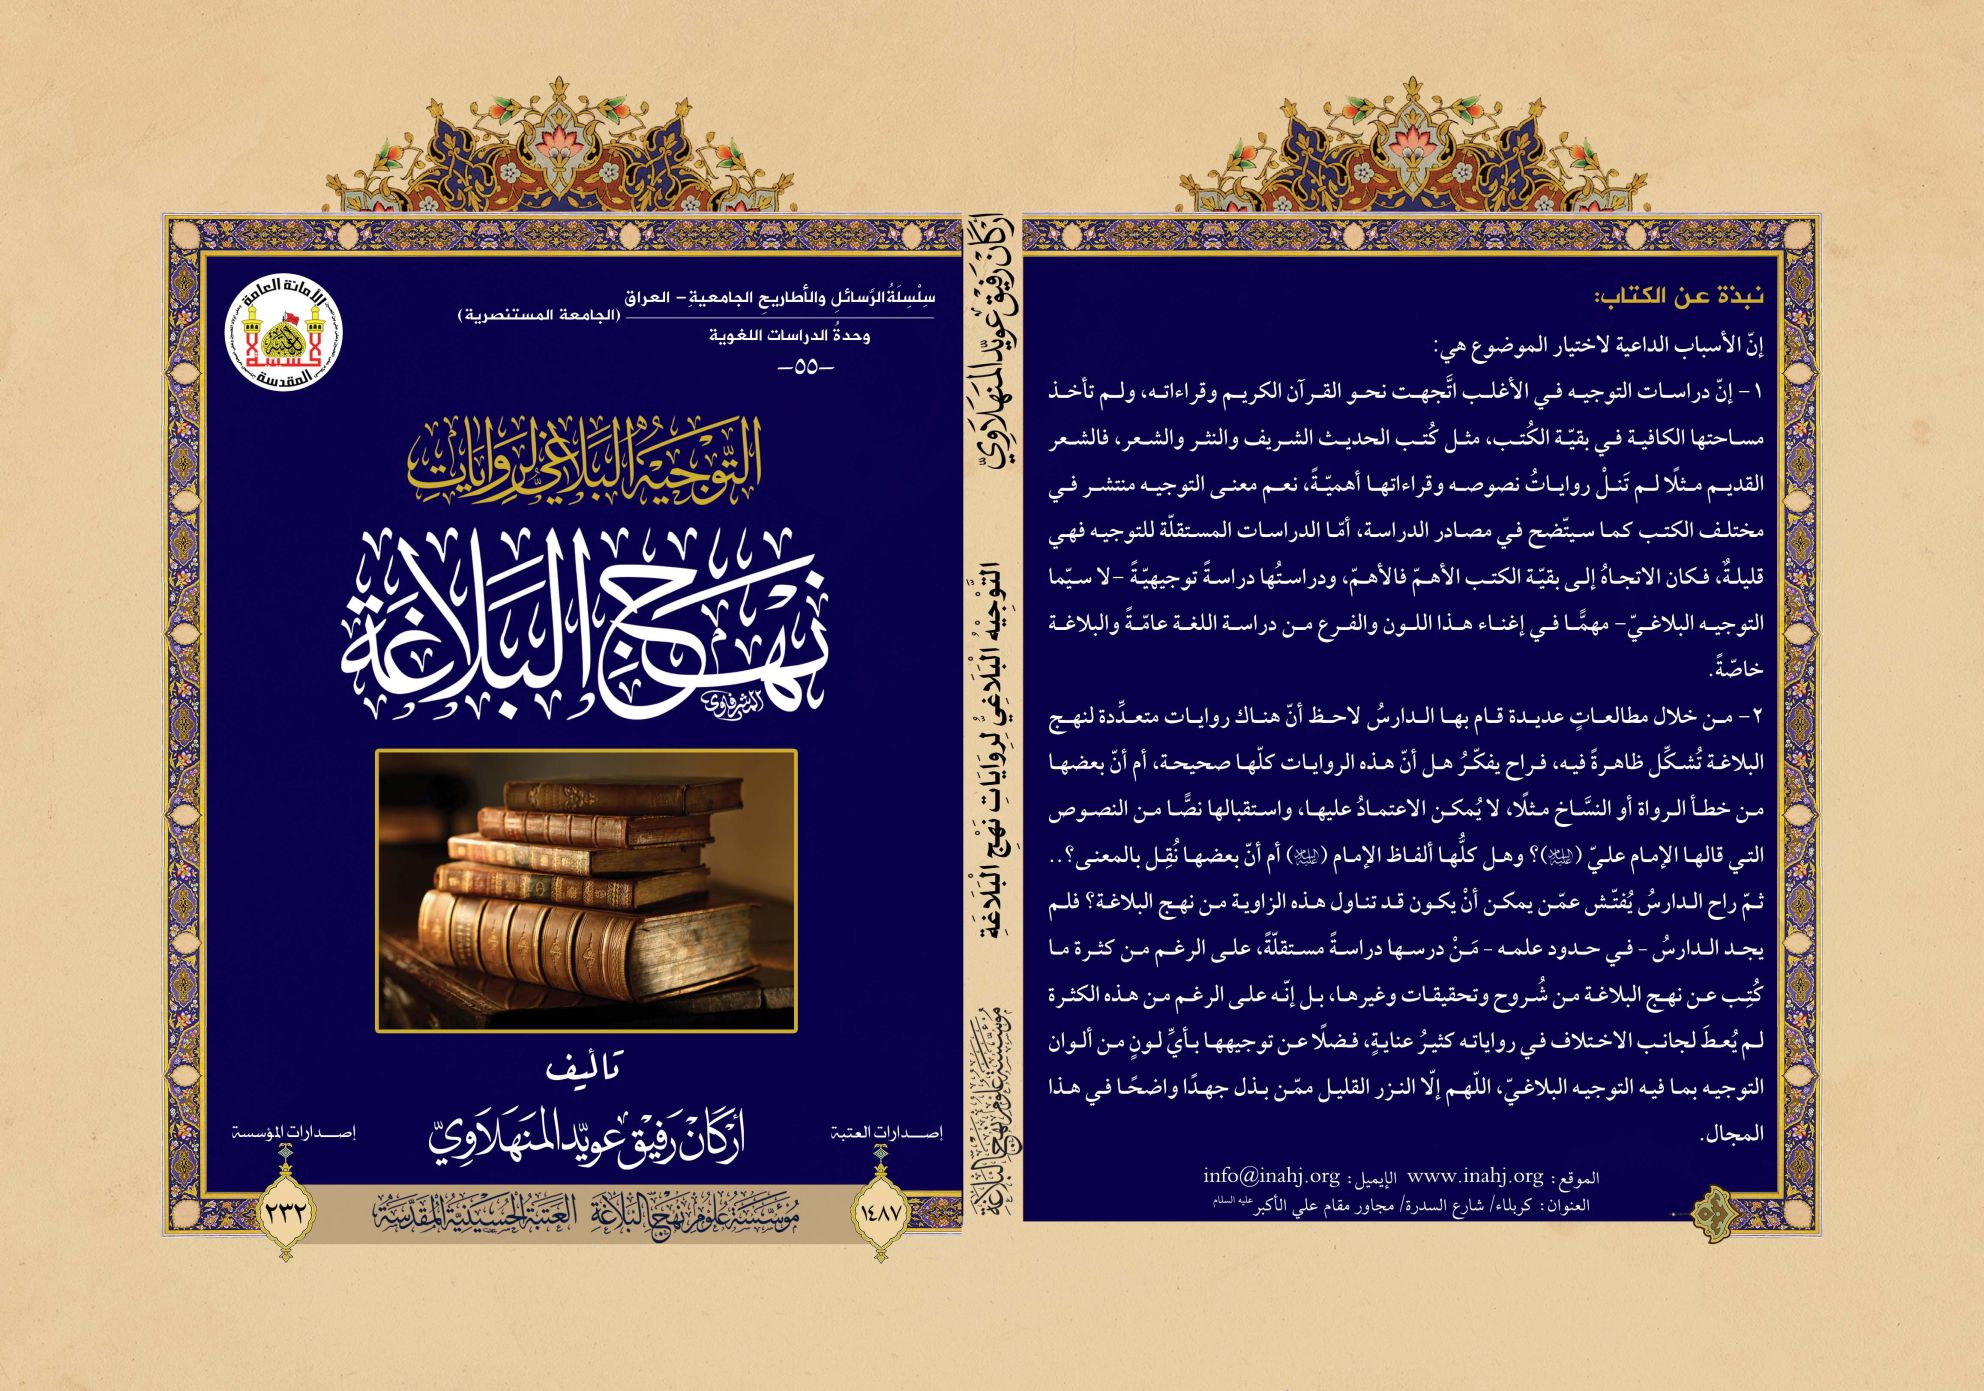 الأمانة العامة
المقدسة
سِلْسِلَةُ الرَّسائلِ والأطاريحِ الجامعيةِ – العراق
(الجامعة المستنصرية)
وحدةُ الدراسات اللغوية
–٥٥–
التَّوْجِيْهُ الْبَلَاغِيُّ لِرِوَايَاتِ
نَهْجِ الْبَلَاغَةِ
تأليف
أركان رفيق عويّد المنهلاويّ
إصدارات العتبة
١٤٨٧
إصدارات المؤسسة
٢٣٢
مؤسسة علوم نهج البلاغة العتبة الحسينية المقدسة
أركان رفيق عويّد المنهلاويّ
التَّوْجِيْهُ الْبَلَاغِيُّ لِرِوَايَاتِ نَهْجِ الْبَلَاغَةِ
مؤسسة علوم نهج البلاغة
نبذة عن الكتاب:
إنّ الأسباب الداعية لاختيار الموضوع هي:
١- إنّ دراسات التوجيه في الأغلب اتَّجهت نحو القرآن الكريم وقراءاته، ولم تأخذ
مساحتها الكافية في بقيّة الكُتب، مثل كُتب الحديث الشريف والنثر والشعر، فالشعر
القديم مثلًا لم تَنلْ رواياتُ نصوصه وقراءاتها أهميّةً، نعم معنى التوجيه منتشر في
مختلف الكتب كما سيتّضح في مصادر الدراسة، أمّا الدراسات المستقلّة للتوجيه فهي
قليلةٌ، فكان الاتجاهُ إلى بقيّة الكتب الأهمّ فالأهمّ، ودراستُها دراسةً توجيهيّةً -لا سيّما
التوجيه البلاغيّ- مهمًّا في إغناء هذا اللون والفرع من دراسة اللغة عامّةً والبلاغة
خاصّةً.
٢- من خلال مطالعاتٍ عديدة قام بها الدارسُ لاحظ أنّ هناك روايات متعدِّدة لنهج
البلاغة تُشكِّل ظاهرةً فيه، فراح يفكّرُ هل أنّ هذه الروايات كلّها صحيحة، أم أنّ بعضها
من خطأ الرواة أو النسَّاخ مثلًا، لا يُمكن الاعتمادُ عليها، واستقبالها نصًّا من النصوص
التي قالها الإمام عليّ (عليه السلام)؟ وهل كلُّها ألفاظ الإمام (عليه السلام) أم أنّ بعضها نُقِل بالمعنى؟..
ثمّ راح الدارسُ يُفتّش عمّن يمكن أنْ يكون قد تناول هذه الزاوية من نهج البلاغة؟ فلم
يجد الدارسُ - في حدود علمه - مَنْ درسها دراسةً مستقلّةً، على الرغم من كثرة ما
كُتِب عن نهج البلاغة من شُروح وتحقيقات وغيرها، بل إنّه على الرغم من هذه الكثرة
لم يُعطَ لجانب الاختلاف في رواياته كثيرُ عنايةٍ، فضلًا عن توجيهها بأيِّ لونٍ من ألوان
التوجيه بما فيه التوجيه البلاغيّ، اللّهم إلّا النزر القليل ممّن بذل جهدًا واضحًا في هذا
المجال.
الموقع: www.inahj.org الإيميل: info@inahj.org
العنوان: كربلاء/ شارع السدرة/ مجاور مقام علي الأكبر عليه السلام